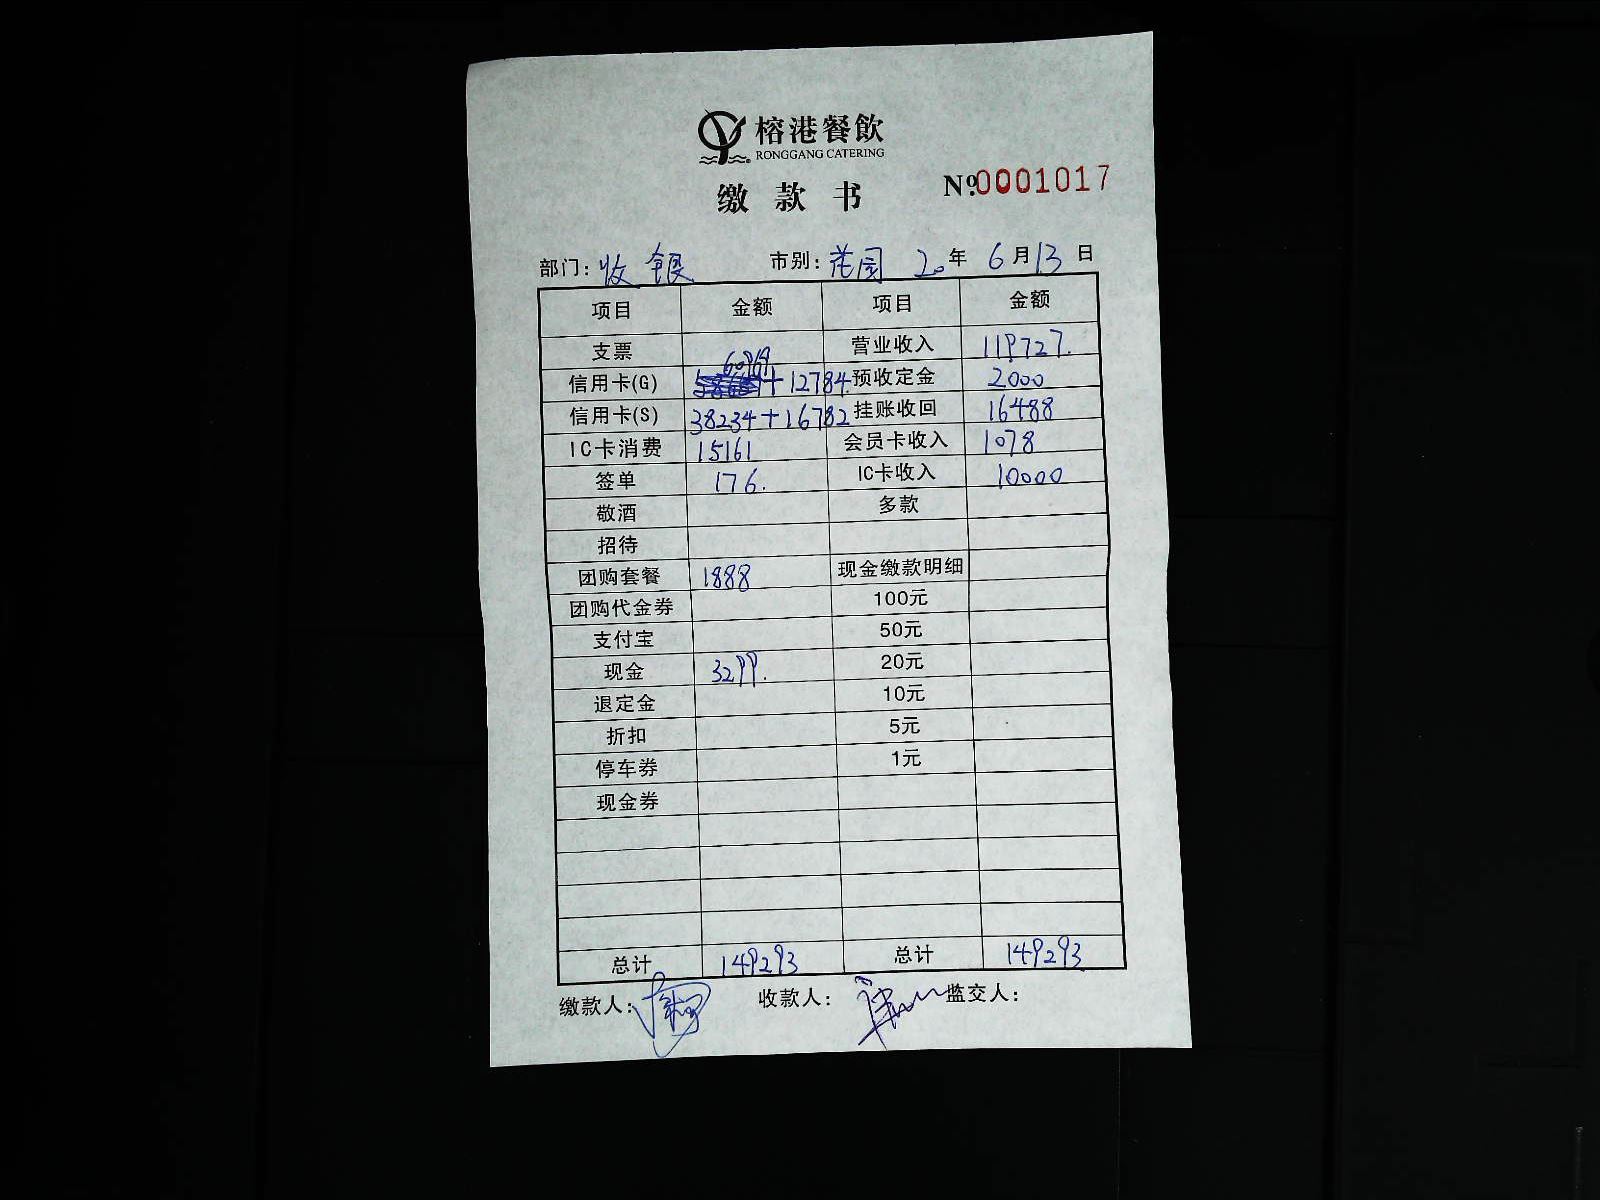 榕港餐飲
RONGGANG CATERING
缴款书 №0001017
部门: 收银 市别: 花园 20年 6月13日
项目 金额 项目 金额
支票 营业收入 119727.
信用卡(G) 60969+12784. 预收定金 2000
信用卡(S) 38234+16782 挂账收回 16488
IC卡消费 15161 会员卡收入 1078
签单 176. IC卡收入 10000
敬酒 多款
招待
团购套餐 1888 现金缴款明细
团购代金券 100元
支付宝 50元
现金 3299. 20元
退定金 10元
折扣 5元
停车券 1元
现金券
总计 149293 总计 149293
缴款人: 收款人: 监交人: